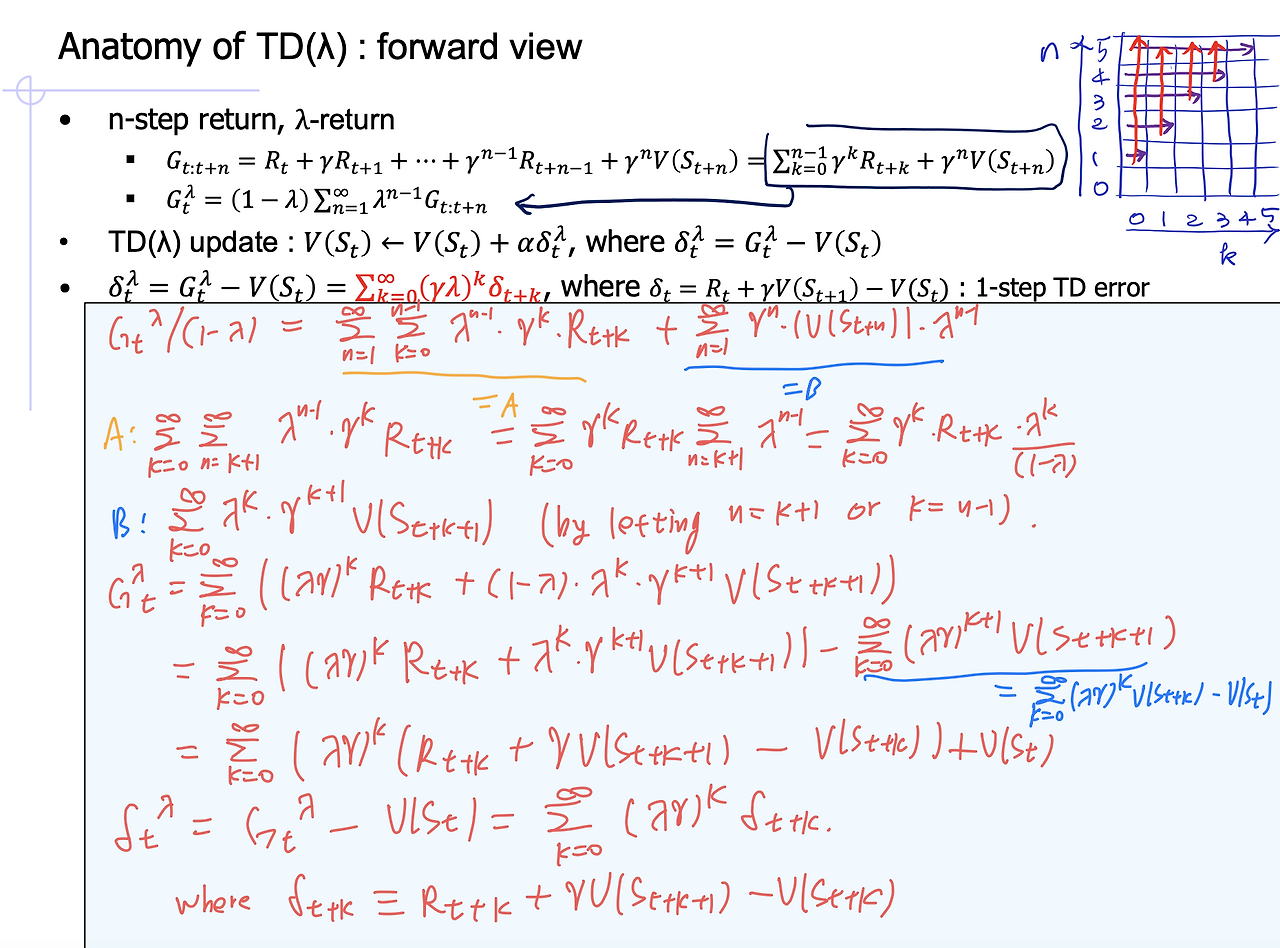 Anatomy of TD(λ) : forward view
n 5
4
3
2
1
0
0 1 2 3 4 5
k
• n-step return, λ-return
▪ G_{t:t+n} = R_t + γR_{t+1} + ⋯ + γ^{n−1}R_{t+n−1} + γ^n V(S_{t+n}) = ∑_{k=0}^{n−1} γ^k R_{t+k} + γ^n V(S_{t+n})
▪ G_t^λ = (1 − λ) ∑_{n=1}^{∞} λ^{n−1} G_{t:t+n}
• TD(λ) update : V(S_t) ← V(S_t) + αδ_t^λ, where δ_t^λ = G_t^λ − V(S_t)
• δ_t^λ = G_t^λ − V(S_t) = ∑_{k=0}^{∞} (γλ)^k δ_{t+k}, where δ_t = R_t + γV(S_{t+1}) − V(S_t) : 1-step TD error
G_t^λ/(1−λ) = ∑_{n=1}^{∞} ∑_{k=0}^{n−1} λ^{n−1}·γ^k·R_{t+k} + ∑_{n=1}^{∞} γ^n·(V(S_{t+n}))·λ^{n−1}
=A =B
A: ∑_{k=0}^{∞} ∑_{n=k+1}^{∞} λ^{n−1}·γ^k R_{t+k} = ∑_{k=0}^{∞} γ^k R_{t+k} ∑_{n=k+1}^{∞} λ^{n−1} = ∑_{k=0}^{∞} γ^k·R_{t+k} ·λ^k/(1−λ)
B: ∑_{k=0}^{∞} λ^k·γ^{k+1} V(S_{t+k+1}) (by letting n=k+1 or k=n−1).
G_t^λ = ∑_{k=0}^{∞} ((λγ)^k R_{t+k} + (1−λ)·λ^k·γ^{k+1} V(S_{t+k+1}))
= ∑_{k=0}^{∞} ((λγ)^k R_{t+k} + λ^k·γ^{k+1} V(S_{t+k+1})) − ∑_{k=0}^{∞} (λγ)^{k+1} V(S_{t+k+1})
= ∑_{k=0}^{∞} (λγ)^k V(S_{t+k}) − V(S_t)
= ∑_{k=0}^{∞} (λγ)^k (R_{t+k} + γV(S_{t+k+1}) − V(S_{t+k})) + V(S_t)
δ_t^λ = G_t^λ − V(S_t) = ∑_{k=0}^{∞} (λγ)^k δ_{t+k}.
where δ_{t+k} ≡ R_{t+k} + γV(S_{t+k+1}) − V(S_{t+k})